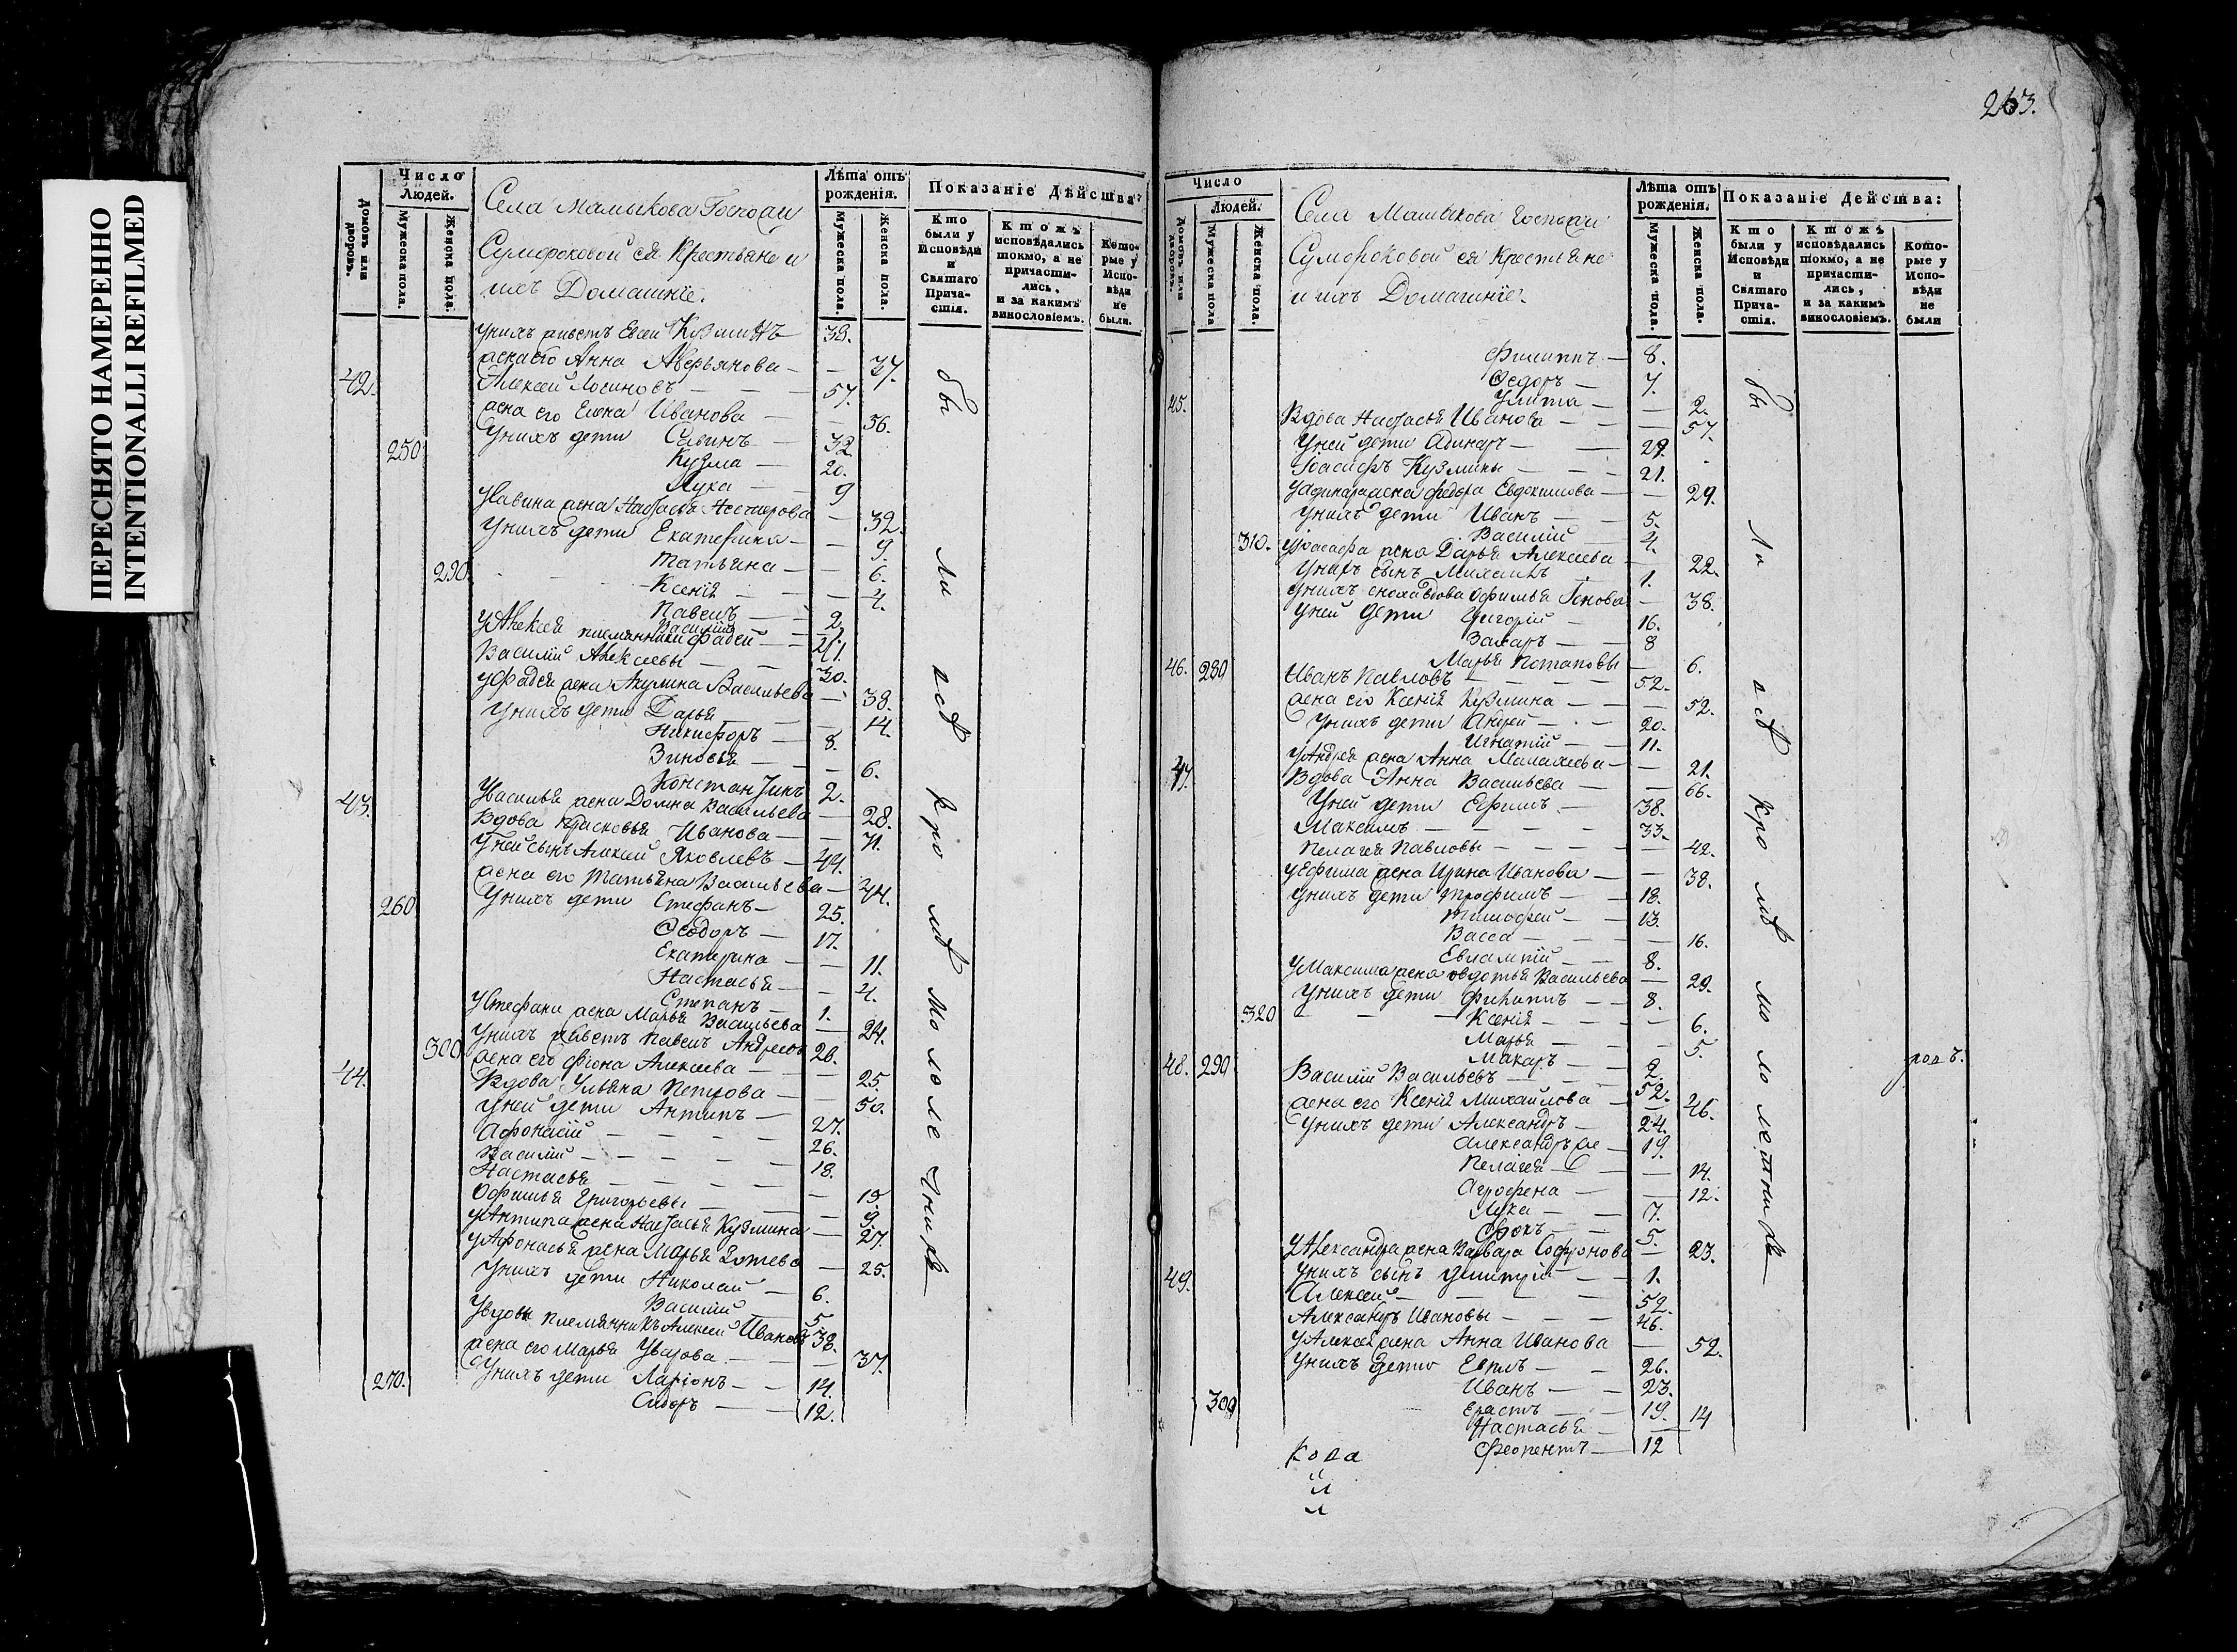 ПЕРЕСНЯТО НАМЕРЕННО
INTENTIONALLI REFILMED
Число Людей.
Домовъ или дворовъ.
Мужеска пола.
Женска пола.
Села Мамыкова Госпожи
Сумороковой ея Крестьяне и
ихъ Домашніе.
Лѣта отъ рожденія.
Мужеска пола.
Женска пола.
Показаніе Дѣйства:
Кто были у Исповѣди и Святаго Причастія.
Ктожъ исповѣдались токмо, а не причастились, и за какимъ винословіемъ.
Которые у Исповѣди не были.
Кузминъ 38.
жена его Анна Аверьянова — 37.
42. Алексей Логиновъ — 57.
жена его Елена Иванова — 36.
Унихъ дети Савинъ — 32
250 Кузма — 20.
Лука — 9
УСавина жена Настасья — 32.
Унихъ дети Екатерина — 9.
Татьяна — 6.
290. Ксенія — 4.
Павелъ — 2.
Василій
УАлексея племянники Фадей —
Василій Алексеевы — 30.
УФадея жена Акулина Васильева — 38.
Унихъ дети Дарья — 14.
Никифоръ — 8.
Зиновья — 6.
Константинъ 2.
УВасилья жена Домна Васильева — 28.
43. Вдова Прасковья Иванова — 71.
Уней сынъ Алексей Яковлевъ — 44.
жена его Татьяна Васильева — 44.
Унихъ дети Стефанъ — 25.
260 Ѳеодоръ — 17.
Екатерина — 11.
Настасья — 4.
Степанъ — 1.
УСтефана жена Марья Васильева — 24.
Унихъ Павелъ Андреевъ 28.
300 жена его Фіона Алексеева — 25.
44. Вдова Ульяна Петрова — 50.
Уней дети Антипъ — 27.
Афонасій — 26.
Василій — 18.
Настасья — 15.
Офимья Григорьевы — 9.
УАнтипа жена Настасья Кузмина — 27.
УАфонасья жена Марья Зотева — 25.
Унихъ дети Николай — 6.
Василій — 5
Увдовы племянникъ Алексей Ивановъ 38.
жена его Марья Уварова — 37.
270. Унихъ дети Ларіонъ — 14.
Сидоръ — 12.
бы ли всѣ кро мѣ мо ло ле тникѣ
263.
Число Людей.
Домовъ или дворовъ.
Мужеска пола
Женска пола.
Села Мамыкова Госпожи
Сумороковой ея Крестьяне
и ихъ Домашніе.
Лѣта отъ рожденія.
Мужеска пола.
Женска пола.
Показаніе Дейсшва:
Кто были у Исповѣди и Святаго Причастія.
Ктожъ исповѣдались токмо, а не причастились, и за какимъ винословіемъ.
Которые у Исповѣди не были
Филиппъ — 8.
Ѳедоръ — 7.
Улита — 2.
45. Вдова Настасья Иванова — 57.
Уней дети —
Іоасафъ Кузмины — 21.
жена Федора Евдокимова — 29.
Унихъ дети Иванъ — 5.
Василій — 4.
310. УІоасафа жена Дарья Алексеева — 22.
Унихъ сынъ Михаилъ — 1.
Унихъ сноха вдова Офимья — 38.
Уней дети Григорій — 16.
Захаръ — 8
Марья Потаповы — 6.
46. 280 Иванъ Павловъ — 52.
жена его Ксенія Кузмина — 52.
Унихъ дети Андрей — 20.
Игнатій — 11.
УАндрея жена Анна — 21.
47. Вдова Анна Васильева — 66.
Уней дети Ефимъ — 38.
Максимъ — 33.
Пелагея Павловы — 42.
УЕфима жена Ирина Иванова — 38.
Унихъ дети Трофимъ — 18.
Тимофей — 13.
Васса — 16.
Евлампій — 8.
УМаксима жена Овдотья Васильева — 29.
Унихъ дети Филиппъ — 8.
320 Ксенія — 6.
Марья — 5.
Макаръ — 2.
48. 290 Василій Васильевъ — 52.
жена его Ксенія Михайлова — 46.
Унихъ дети Александръ — 24.
Александръ же — 19.
Пелагея — 14.
Агрофена — 12.
Лука — 7.
Фокъ — 5.
УАлександра жена Варвара Софронова — 23.
Унихъ сынъ Димитрій — 1.
49. Алексей — 52.
Александръ Ивановы — 46.
УАлексея жена Анна Иванова — 52.
Унихъ дети Евплъ — 26.
Иванъ — 23.
300 Ерастъ — 19.
Настасья — 14
Феопентъ — 12
бы ли всѣ кро мѣ мо ло ле тникѣ